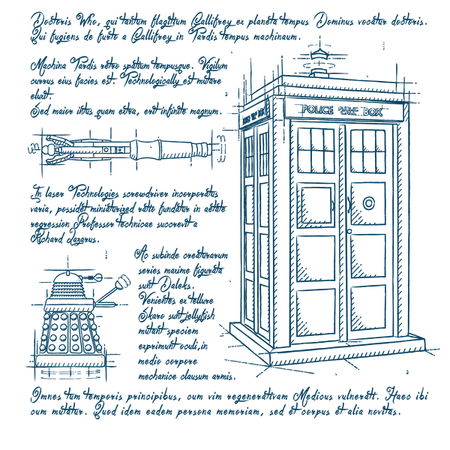 Doctoris Who, qui tantum flagitium Gallifrey ex planeta tempus Dominus vocatur doctoris.
Qui fugiens de furto a Gallifrey in Tardis tempus machinam.
Machina Tardis retro spatium tempusque. Vigilum
currus eius facies est. Technologically est mutare
eluit.
Sed maior intus quam extra, erit infinite magnum.
POLICE BOX
POLICE BOX
In laser Technologies screwdriver incorporatus
varia, possidet miniaturized retro funditur in aetate
regression Professor technicae succrevit a
Richard Lazarus.
Ac subinde creaturarum
series maxime figurata
sunt Daleks.
Venientes ex tellure
Skaro sunt jellyfish
mutant speciem
exprimunt oculi, in
medio corpore
mechanice clausum armis.
Omnes tum temporis principibus, cum vim regenerativam Medicus vulnerati. Haec ibi
cum mutatur. Quod idem eadem persona memoriam, sed et corpus et alia novitas.